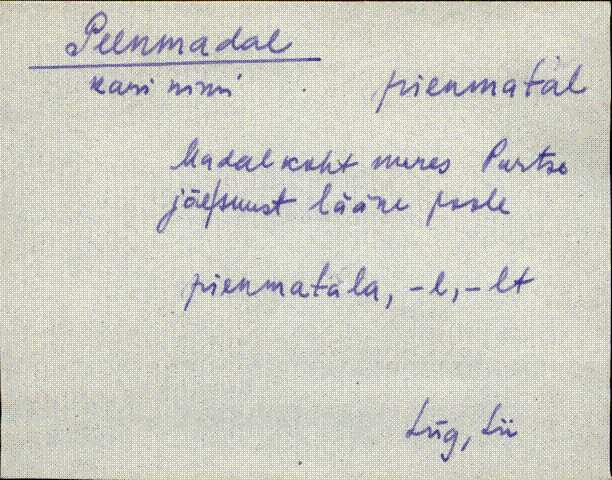 Peenmadal
kari nimi
pienmatal
Madal koht meres Purtse
jõe/suust lääne poole
pienmatala, -l, -lt
Lüg, Lii